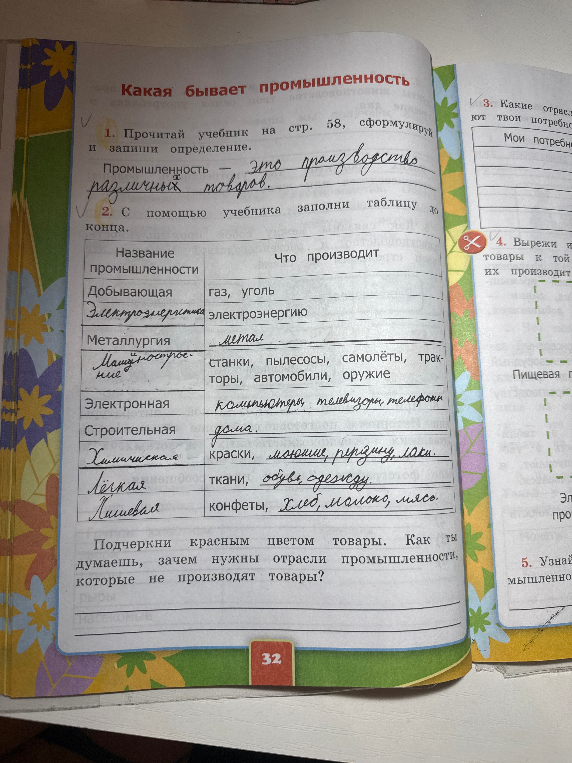 Какая бывает промышленность
1. Прочитай учебник на стр. 58, сформулируй
и запиши определение.
Промышленность — это производство
различных товаров.
2. С помощью учебника заполни таблицу до
конца.
Название
промышленности
Что производит
Добывающая
газ, уголь
Электроэнергетика
электроэнергию
Металлургия
метал
Машиностроение
станки, пылесосы, самолёты, трак-
торы, автомобили, оружие
Электронная
компьютеры, телевизоры, телефоны
Строительная
дома.
Химическая
краски, моющие, резину, лаки.
Лёгкая
ткани, обувь, одежду.
Пищевая
конфеты, хлеб, молоко, мясо.
Подчеркни красным цветом товары. Как ты
думаешь, зачем нужны отрасли промышленности,
которые не производят товары?
32
3. Какие отрасл
ют твои потребно
Мои потребн
4. Вырежи и
товары к той
их производит
Пищевая п
Эл
про
5. Узнай
мышленно